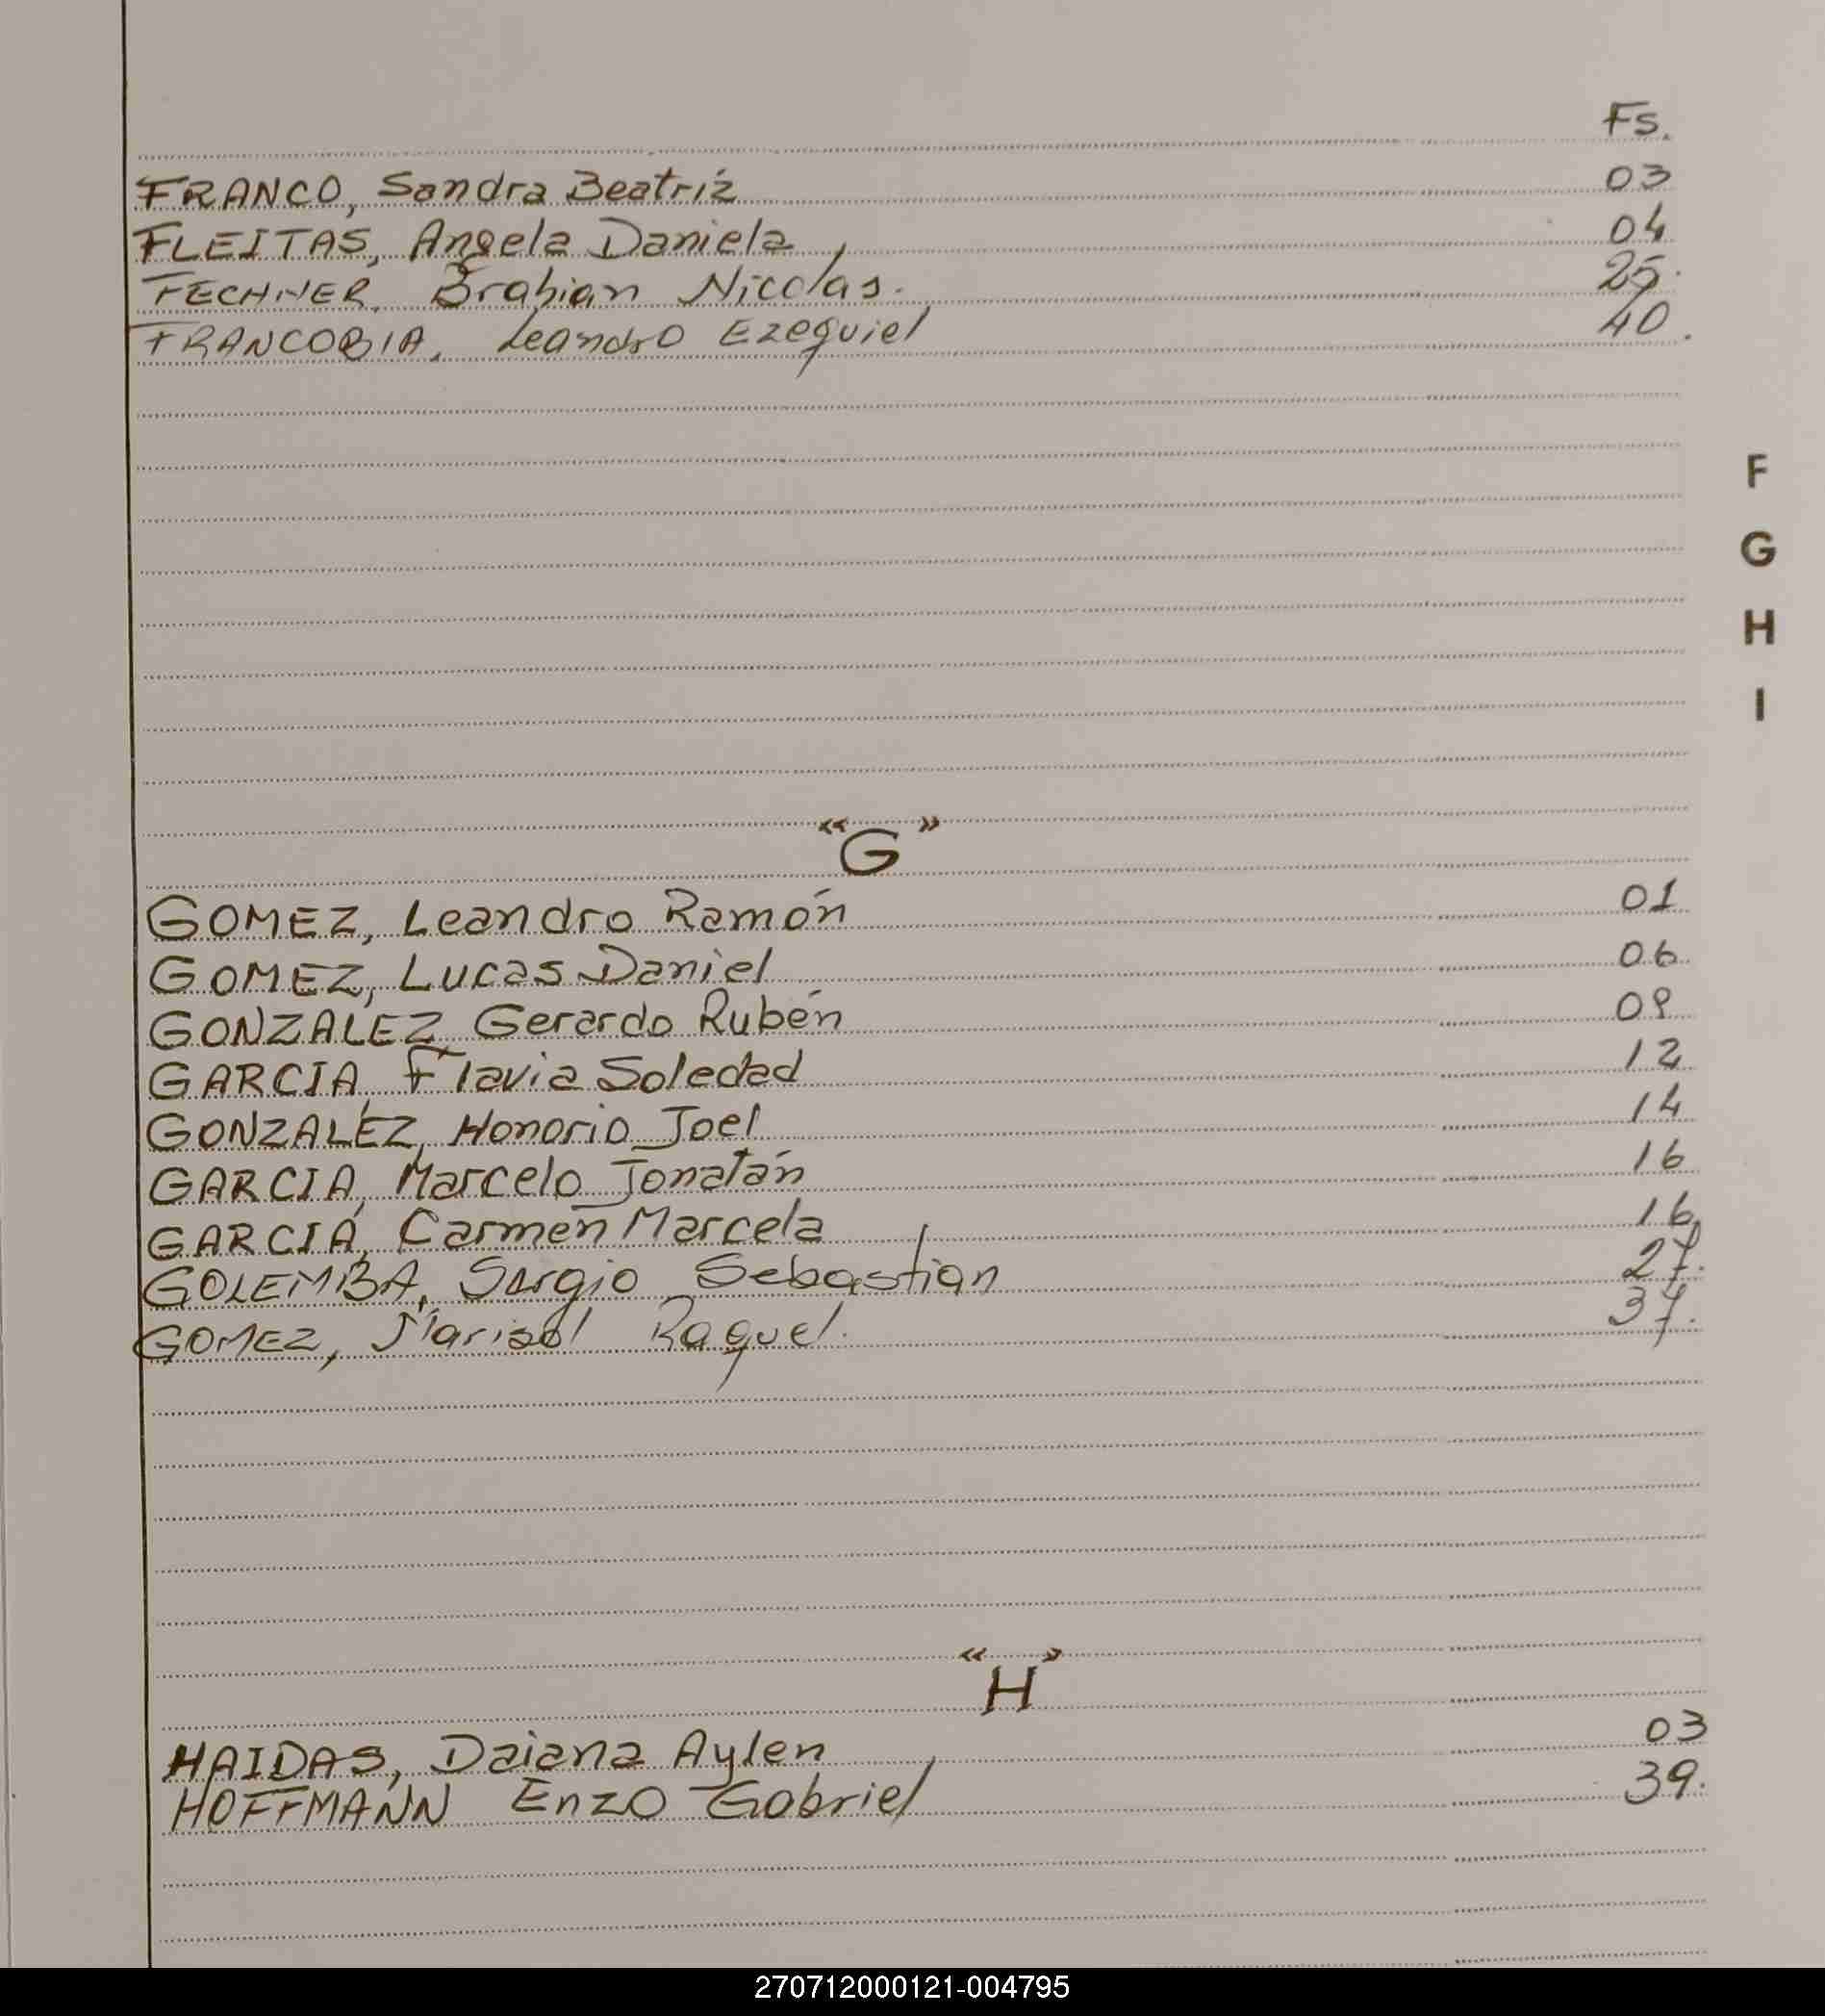 Fs.
FRANCO, Sandra Beatríz 03
FLEITAS, Angela Daniela 04
FECHNER, Brahian Nicolás. 25.
FRANCOBIA, Leandro Ezequiel 40.
F
G
H
I
"G"
GOMEZ, Leandro Ramón 01
GOMEZ, Lucas Daniel 06
GONZALEZ, Gerardo Rubén 09
GARCIA, Flavia Soledad 12
GONZALEZ, Honorio Joel 14
GARCIA, Marcelo Jonatán 16
GARCIA, Carmen Marcela 16
GOLEMBA, Sergio Sebastián 27.
GOMEZ, Marisol Raquel. 37.
"H"
HAIDAS, Daiana Aylen 03
HOFFMANN Enzo Gabriel 39.
270712000121-004795